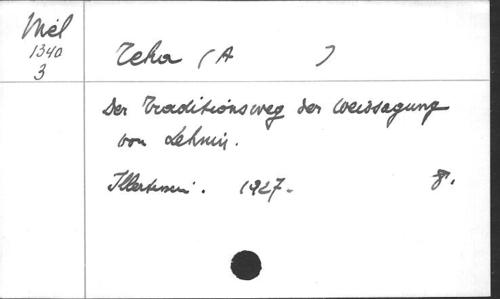 Mél
1340
3
Zeka (A )
Der Traditionsweg der Weissagung
von Lehnin.
Illertissen. 1927. 8°.